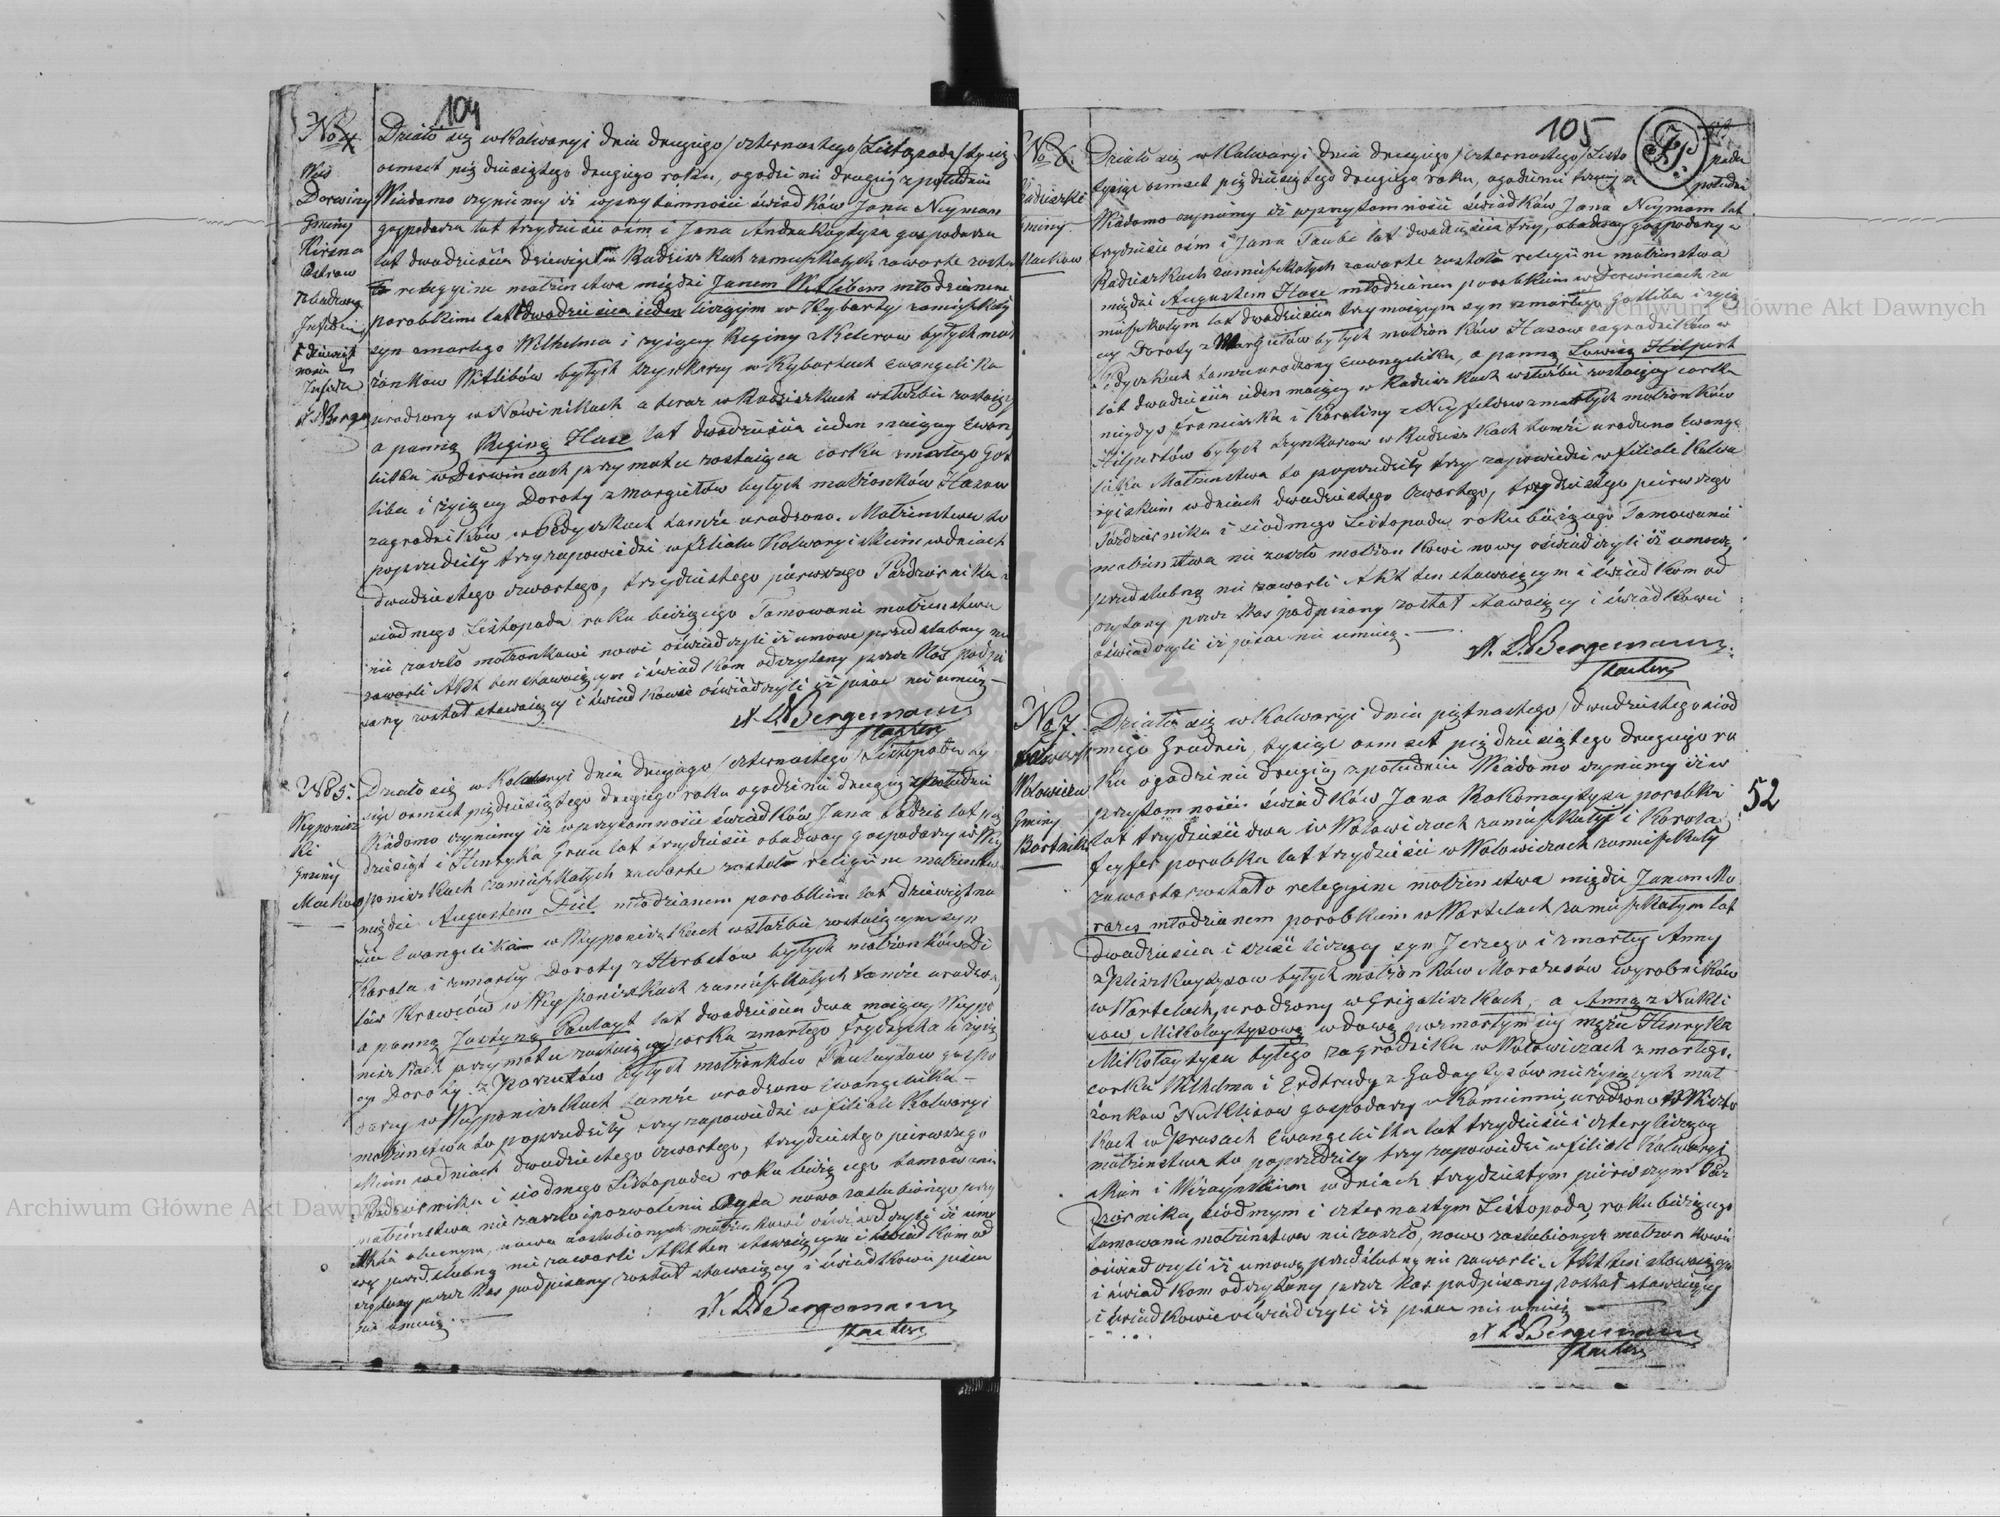 104
No 4
Wieś
Derwiny
Gminy
Kirsna
Ostrow
Działo się w Kalwaryi dnia drugiego / czternastego / Listopada / tysiąc
ośmset piędziesiątego drugiego roku, o godzinie drugiej z południa
Wiadomo czynimy iż w przytomności świadków Jana Neyman
gospodarza lat trzydzieści ośm i Jana Andrukaytysa gospodarza
lat dwadzieścia dziewięć w Radziszkach zamieszkałych zawarte zosta
ło religijne małżeństwa między Janem Witlibem młodzianem
parobkiem lat dwadzieścia jeden liczącym w Kybarty zamieszkały
syn zmarłego Wilhelma i żyjącey Reginy z Kelerow byłych mał
żonkow Witlibów byłych szynkarzy w Kybartach Ewangelika
urodzony w Nowinikach a teraz w Radziszkach w służbie zostający
a panną Reginą Hase lat dwadzieścia jeden mającą Ewan
lika w Derwińcach przy matce zostająca corka zmarłego Got
liba i żyjącey Doroty z Margietow byłych małżonków Hasow
zagrodników w Pedyszkach tamże urodzona. Małżeństwo to
poprzedziły trzy zapowiedzi w filiale Kalwaryiskim w dniach
dwudziestego czwartego, trzydziestego pierwszego Października i
siódmego Listopada roku bieżącego Tamowanie małżeństwa
nie zaszło małżonkowie nowi oświadczyli iż umowy przedślubney nie
zawarli Akt ten stawającym i świadkom odczytany przez Nas podpi
sany został stawający i świadkowie oświadczyli iż pisać nie umieją —
A. L. Bergemann
Pastor
No 5.
Wyponisz
ki
Gminy
Machow
Działo się w Kalwaryi dnia drugiego / czternastego / Listopada ty
siąc ośmset piędziesiątego drugiego roku o godzinie drugiej z południa
Wiadomo czynimy iż w przytomności świadków Jana lat pię
dziesiąt i Henryka Grau lat trzydzieści obadway gospodarzy w Wy
poniszkach zamieszkałych zawarte zostało religijne małżeństwo
między Augustem Diel młodzianem parobkiem lat dziewiętna
ście Ewangelika w Wyponiszkach w służbie zostającym syn
Karola i zmarłey Doroty z Herbstów byłych małżonków Di
lów Krawców w Wyponiszkach zamieszkałych tamże urodzony,
a panną Justyną Paulayt lat dwadzieścia dwa mającą Wyppo
niszkach przy matce zostającą corka zmarłego Frydrycha i żyją
cey Doroty z byłych małżonków Paulaytow gospo
darzy w Wypponiszkach tamże urodzona Ewangelika —
małżeństwo to poprzedziły trzy zapowiedzi w filiale Kalwaryi
skim w dniach dwudziestego czwartego, trzydziestego pierwszego
Października i siódmego Listopada roku bieżącego tamowanie
małżeństwa nie zaszło i pozwolenie Oyca nowo zaślubionego przy
Akcie obecnym, nowo zaślubionych małżonkowie oświadczyli iż umo
wy przedślubną nie zawarli Akt ten stawającym i świadkom od
czytany przez Nas podpisany został stawający i świadkowie pisać
nie umieją. —
A. L. Bergemann
Pastor
105
No 6.
Radziszki
Gminy
Działo się w Kalwaryi dnia drugiego / czternastego / Listo pada
tysiąc ośmset pięćdziesiątego drugiego roku, o godzinie trzeciej z południa
Wiadomo czynimy iż w przytomności świadków Jana Neymam lat
trzydzieści ośm i Jana Taube lat dwadzieścia trzy, obadway gospodarzy w
Radziszkach zamieszkałych zawarte zostało religijne małżeństwa
między Augustem Hase młodzianem parobkiem w Derwiniach za
mieszkałym lat dwadzieścia trzy mającym syn zmarłego Gotliba i żyją
cey Doroty z Margietów byłych małżonków Hasow zagrodników w
Pedyszkach tamże urodzony Ewangelika, a panną Lowizą Hilpert
lat dwadzieścia jeden mającą w Radziszkach w służbie zostającą corka
niegdyś Franciszka i Karoliny z Neyfeldow zmarłych małżonków
Hilpertów byłych szynkarzow w Radziszkach tamże urodzona Ewange
licka Małżeństwo to poprzedziły trzy zapowiedzi w filiale Kalwa
ryiskim w dniach dwudziestego czwartego, trzydziestego pierwszego
Października i siódmego Listopada roku bieżącego Tamowanie
małżeństwa nie zaszło małżonkowie nowy oświadczyli iż umowę
przedślubną nie zawarli Akt ten stawającym i świadkom od
czytany przez Nas podpisany został stawający i świadkowie
oświadczyli iż pisać nie umieją. —
A. L. Bergemann
Pastor
No 7.
Wołowicza
Gminy
Bartniki
Działo się w Kalwaryi dnia piętnastego / dwudziestego siód
mego Grudnia, tysiąc ośmset pięćdziesiątego drugiego ro
ku o godzinie drugiej z południa Wiadomo czynimy iż w
przytomności świadków Jana Rakomaytysa parobka
lat trzydzieści dwa w Wołowiczach zamieszkały i Karola
Feyfer parobka lat trzydzieści w Wołowiczach zamieszkały
zawarte zostało religijne małżeństwa między Janem Mo
razes młodzianem parobkiem w Wartelach zamieszkałym lat
dwadzieścia i sześć liczący syn Jerzego i zmarłey Anny
z Pliszkaytysow byłych małżonków Morazesów wyrobników
w Wartelach, urodzony w Grigaliszkach, a Anną z Nukli
sow Mikołaytysową wdową po zmarłym jej mężu Henryka
Mikołaytysa byłego zagrodnika w Wołowiczach zmarłego,
corka Wilhelma i Erdtrudy z Gudaytysów nieżyjących mał
żonkow Nuklisow gospodarzy w Kamienniy, urodzona w
kach w Prusach Ewangelicka lat trzydzieści i cztery licząca
małżeństwo to poprzedziły trzy zapowiedzi w filiale Kalwaryi
skim i Wizaynskim w dniach trzydziestym pierwszym Paź
dziernika, siódmym i czternastym Listopada, roku bieżącego
tamowanie małżeństwa nie zaszło, nowo zaślubionych małżonkowie
oświadczyli iż umowę przedślubną nie zawarli. Akt ten stawającym
i świadkom odczytany przez Nas podpisany został stawający
i świadkowie oświadczyli iż pisać nie umieją —
A. L. Bergemann
Pastor
52
Archiwum Główne Akt Dawnych
Archiwum Główne Akt Dawnych